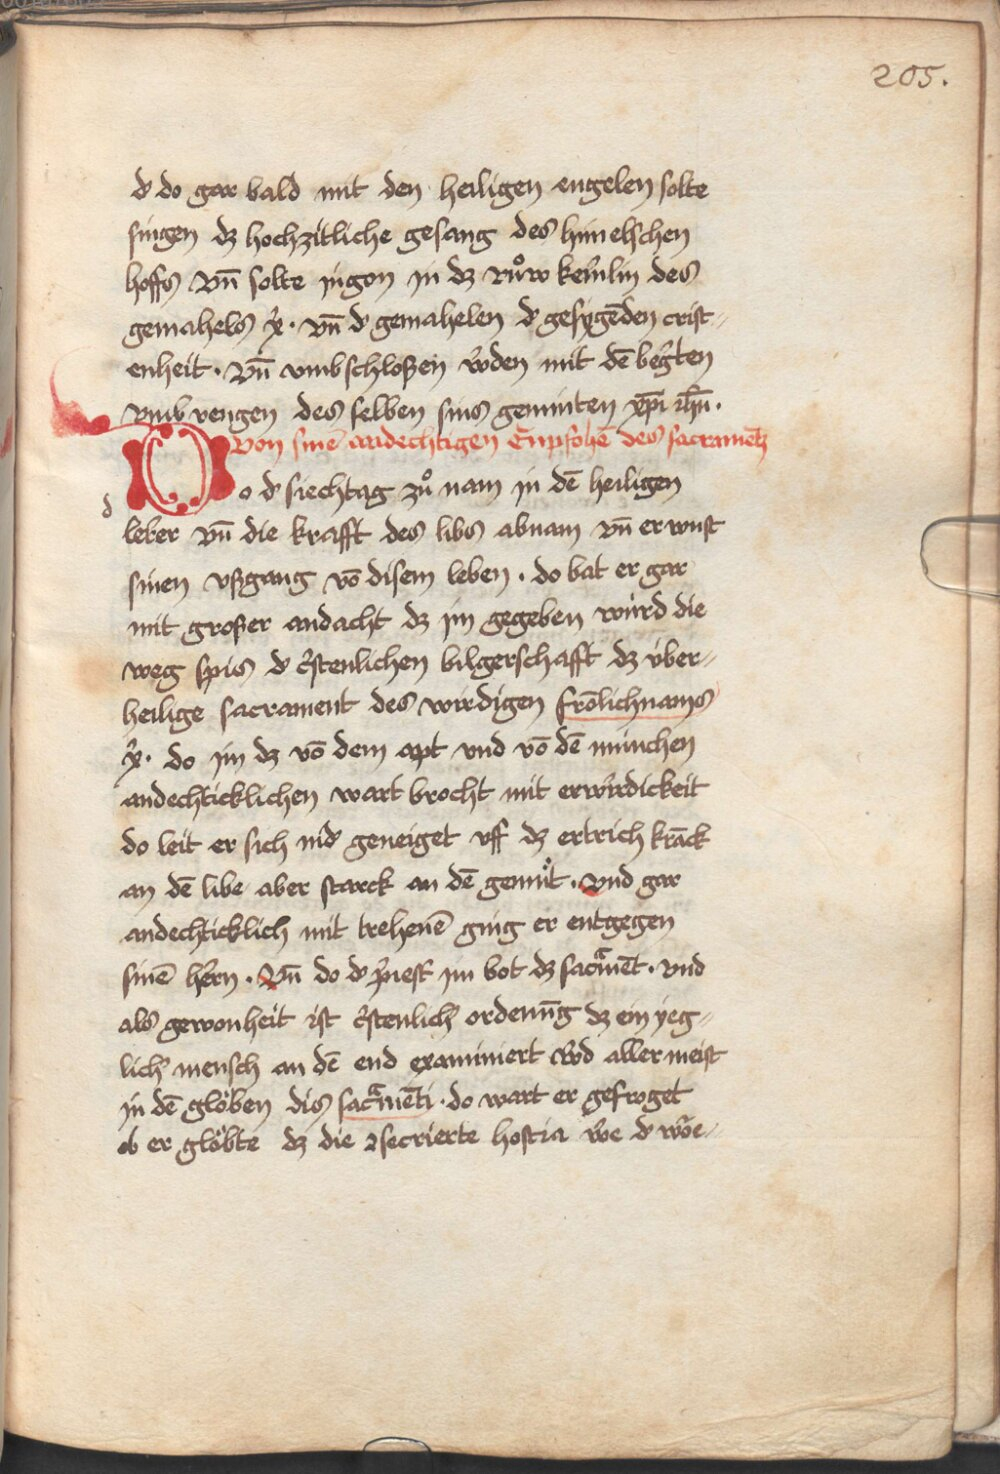 205.
d' do gar bald mit den heiligen engelen solte
singen dz hochzitliche gesang des himelschen
hoffs vn̄ solte jngon jn dz růw kemlin des
gemahels x̄p̄i. vn̄ d' gemahelen d' gesygēden crist-
enheit. Vn̄ vmbschloßen w'den mit dē beg'ten
vmbvengen des selben sins geminten xp̄i ih̄u.
Von sinē andechtigen Enpfohē des sacramētz
Do d' siechtag zů nam jn dē heiligen
d
lerer vn̄ die krafft des libs abnam vn̄ er wust
sinen vßgang vō disem leben. do bat er gar
mit großer andacht dz jm gegeben würd die
weg spis d' c'stenlichen bilgerschafft dz über-
heilige sacrament des wirdigen frōlichnams
x̄p̄i. do jm dz vō dem apt vnd vō dē münchen
andechticklichen wart brocht mit erwirdickeit
do leit er sich nid' geneiget vff dz ertrich krāck
an dē libe aber starck an dē gemůt. vnd gar
andechticklich mit trehenē ging er entgegen
sinē h'ern. Vn̄ do d' p'riest' im bot dz sacͣmēt. vnd
als gewonheit ist c'stenlich' ordenūg dz ein yeg-
lich' mensch an dē end examiniert w'd aller meist
jn dē glöben dis sacͣmēti. do wart er gefroget
ob er glöbte dz die ꝯsecrierte hostia w'e d' wōe-